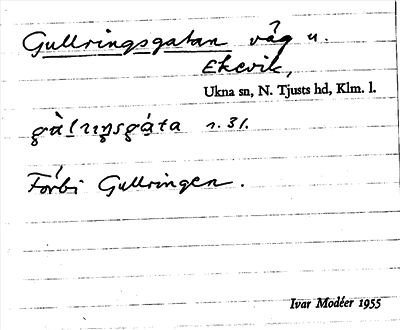 Gullringsgatan väg u.
Ekevik,
Ukna sn, N. Tjusts hd, Klm. l.
s. 31.
Förbi Gullringen.
Ivar Modéer 1955